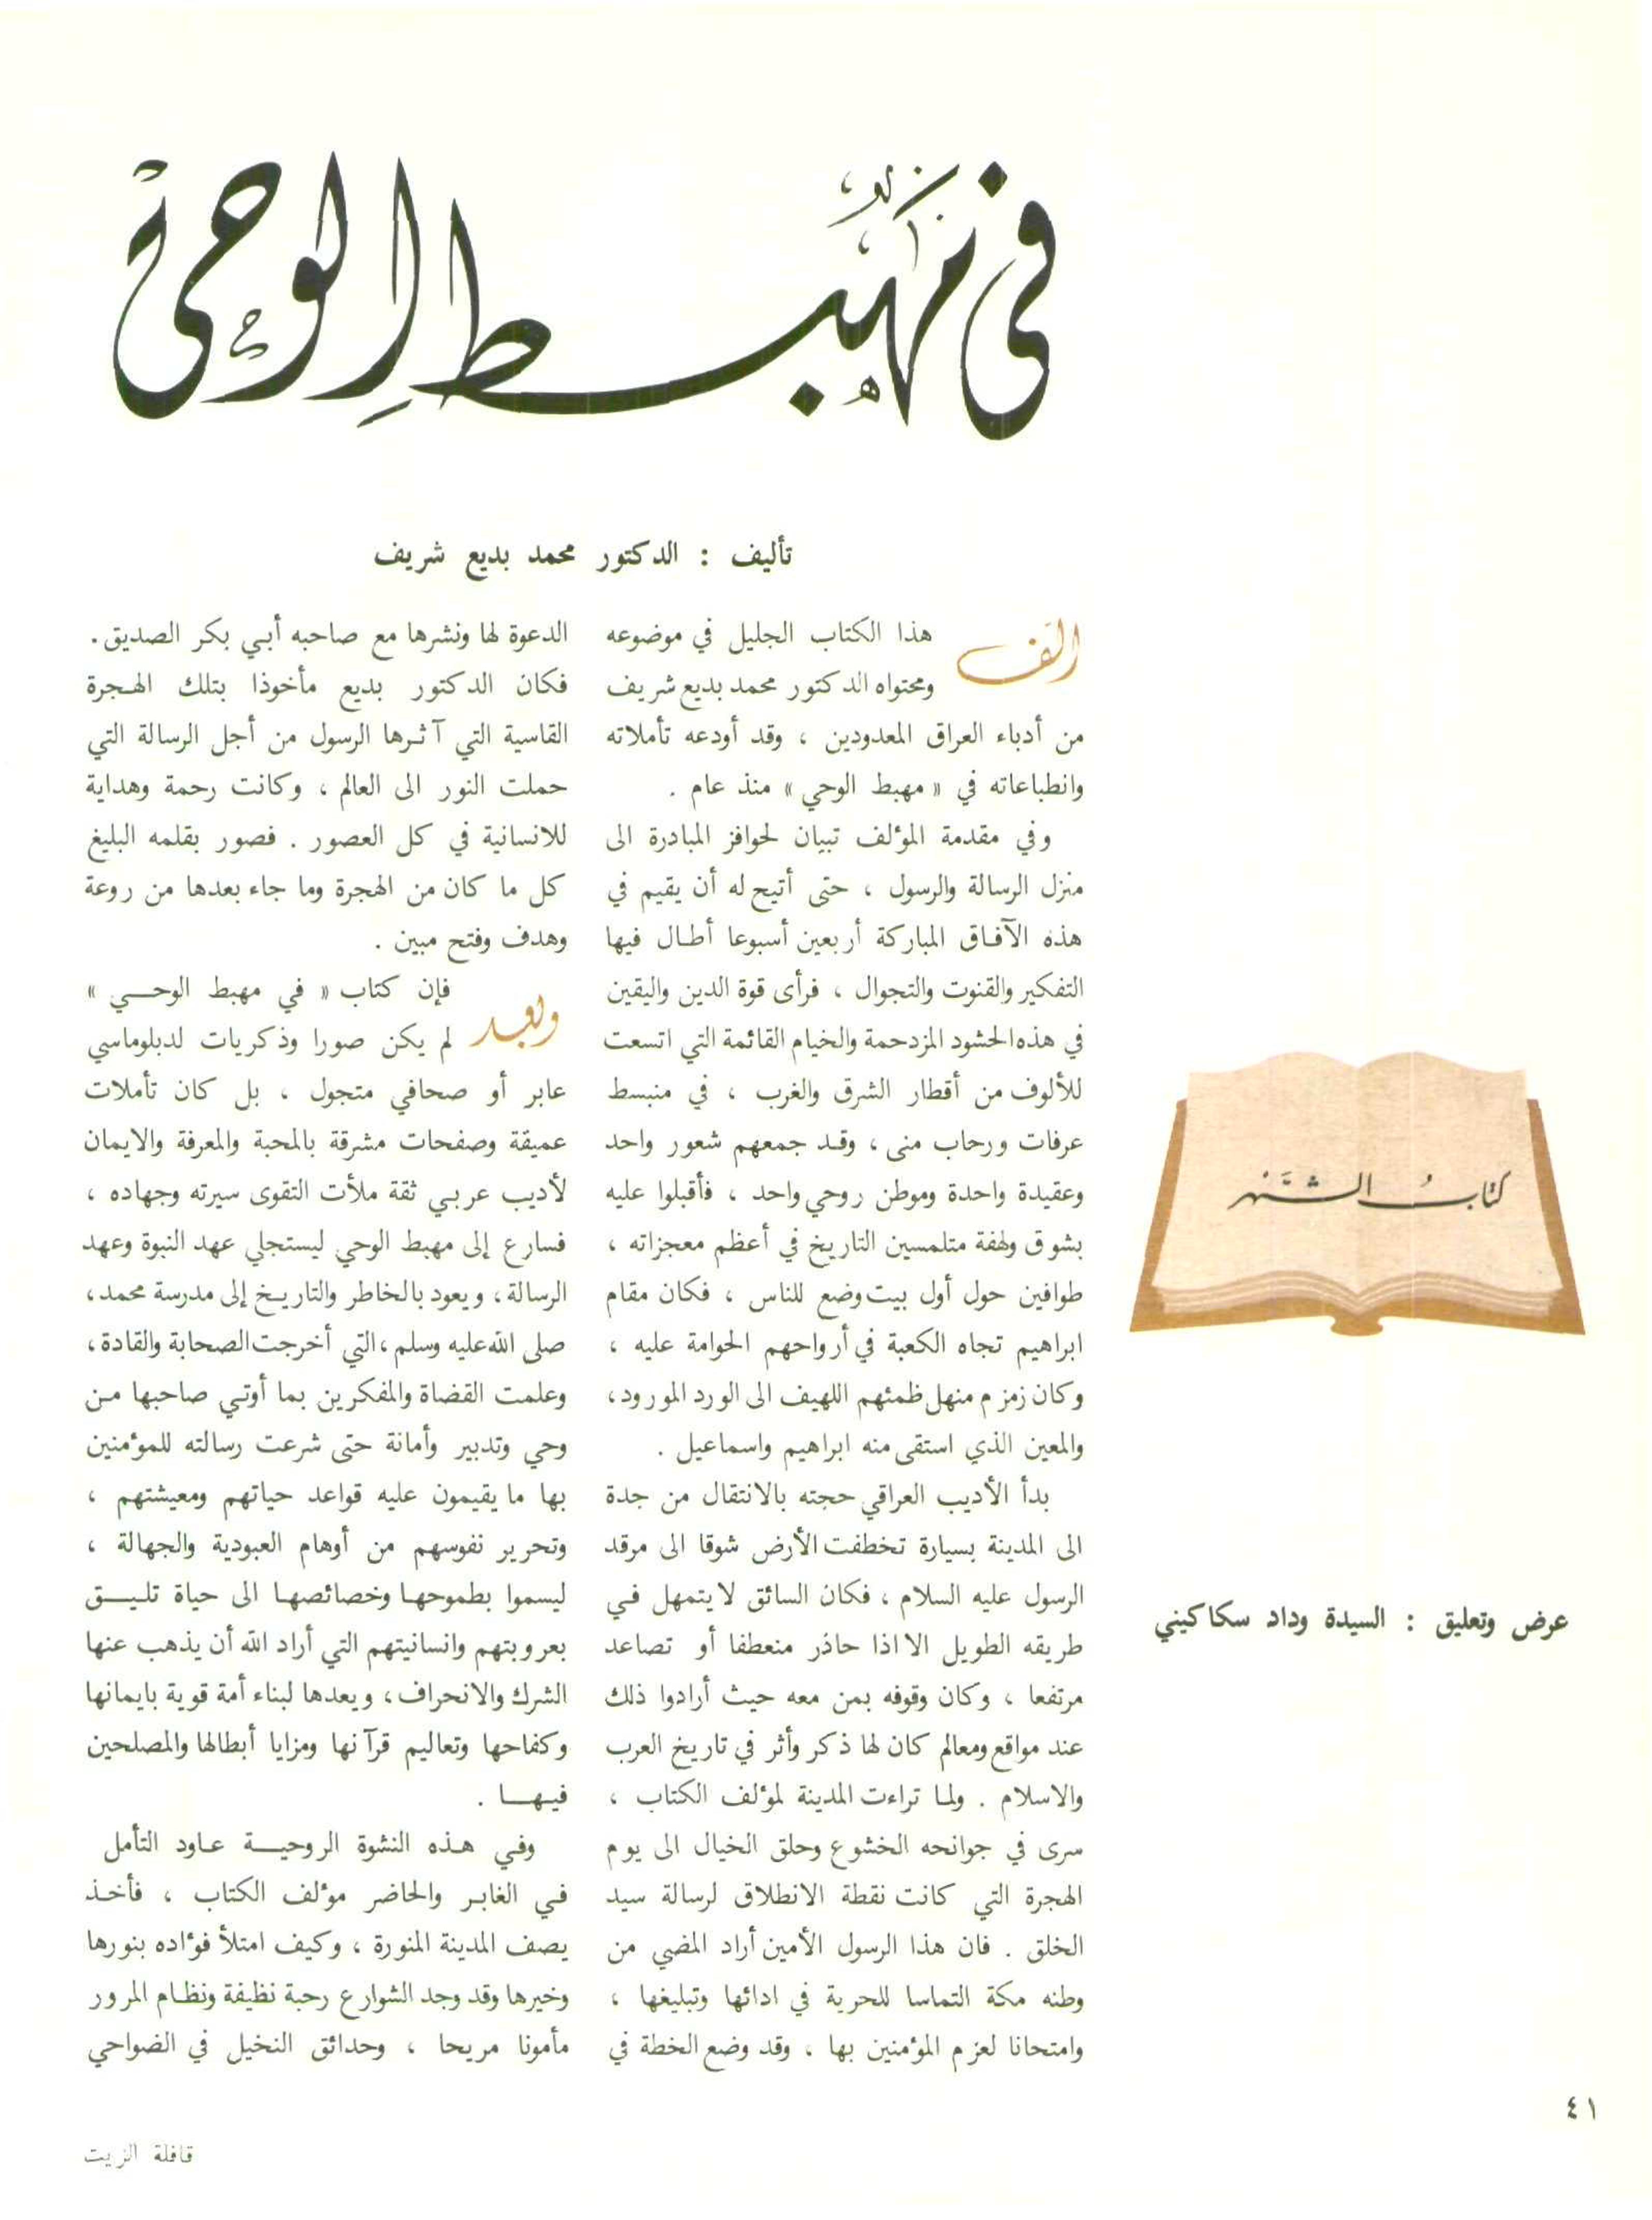 في مهبط الوحي
تأليف : الدكتور محمد بديع شريف
ألف
هذا الكتاب الجليل في موضوعه
ومحتواه الدكتور محمد بديع شريف
من أدباء العراق المعدودين ، وقد أودعه تأملاته
وانطباعاته في « مهبط الوحي » منذ عام .
وفي مقدمة المؤلف تبيان لحوافز المبادرة الى
منزل الرسالة والرسول ، حتى أتيح له أن يقيم في
هذه الآفاق المباركة أربعين أسبوعا أطال فيها
التفكير والقنوت والتجوال ، فرأى قوة الدين واليقين
في هذه الحشود المزدحمة والخيام القائمة التي اتسعت
للألوف من أقطار الشرق والغرب ، في منبسط
عرفات ورحاب منى ، وقد جمعهم شعور واحد
وعقيدة واحدة وموطن روحي واحد ، فأقبلوا عليه
بشوق ولهفة متلمسين التاريخ في أعظم معجزاته ،
طوافين حول أول بيت وضع للناس ، فكان مقام
ابراهيم تجاه الكعبة في أرواحهم الحوامة عليه ،
وكان زمزم منهل ظمئهم اللهيف الى الورد المورود ،
والمعين الذي استقى منه ابراهيم واسماعيل .
بدأ الأديب العراقي حجته بالانتقال من جدة
الى المدينة بسيارة تخطفت الأرض شوقا الى مرقد
الرسول عليه السلام ، فكان السائق لا يتمهل في
طريقه الطويل الا اذا حاذر منعطفا أو تصاعد
مرتفعا ، وكان وقوفه بمن معه حيث أرادوا ذلك
عند مواقع ومعالم كان لها ذكر وأثر في تاريخ العرب
والاسلام . ولما تراءت المدينة لمؤلف الكتاب ،
سرى في جوانحه الخشوع وحلق الخيال الى يوم
الهجرة التي كانت نقطة الانطلاق لرسالة سيد
الخلق . فان هذا الرسول الأمين أراد المضي من
وطنه مكة التماسا للحرية في ادائها وتبليغها ،
وامتحانا لعزم المؤمنين بها ، وقد وضع الخطة في
الدعوة لها ونشرها مع صاحبه أبي بكر الصديق .
فكان الدكتور بديع مأخوذا بتلك الهجرة
القاسية التي آثرها الرسول من أجل الرسالة التي
حملت النور الى العالم ، وكانت رحمة وهداية
للانسانية في كل العصور . فصور بقلمه البليغ
كل ما كان من الهجرة وما جاء بعدها من روعة
وهدف وفتح مبين .
وبعد
فإن كتاب « في مهبط الوحي »
لم يكن صورا وذكريات لدبلوماسي
عابر أو صحافي متجول ، بل كان تأملات
عميقة وصفحات مشرقة بالمحبة والمعرفة والايمان
لأديب عربي ثقة ملأت التقوى سيرته وجهاده ،
فسارع إلى مهبط الوحي ليستجلي عهد النبوة وعهد
الرسالة ، ويعود بالخاطر والتاريخ إلى مدرسة محمد ،
صلى الله عليه وسلم ، التي أخرجت الصحابة والقادة ،
وعلمت القضاة والمفكرين بما أوتي صاحبها من
وحي وتدبير وأمانة حتى شرعت رسالته للمؤمنين
بها ما يقيمون عليه قواعد حياتهم ومعيشتهم ،
وتحرير نفوسهم من أوهام العبودية والجهالة ،
ليسموا بطموحها وخصائصها الى حياة تليق
بعروبتهم وانسانيتهم التي أراد الله أن يذهب عنها
الشرك والانحراف ، ويعدها لبناء أمة قوية بايمانها
وكفاحها وتعاليم قرآنها ومزايا أبطالها والمصلحين
فيها .
وفي هذه النشوة الروحية عاود التأمل
في الغابر والحاضر مؤلف الكتاب ، فأخذ
يصف المدينة المنورة ، وكيف امتلأ فؤاده بنورها
وخيرها وقد وجد الشوارع رحبة نظيفة ونظام المرور
مأمونا مريحا ، وحدائق النخيل في الضواحي
كتاب الشهر
عرض وتعليق : السيدة وداد سكاكيني
٤١
قافلة الزيت